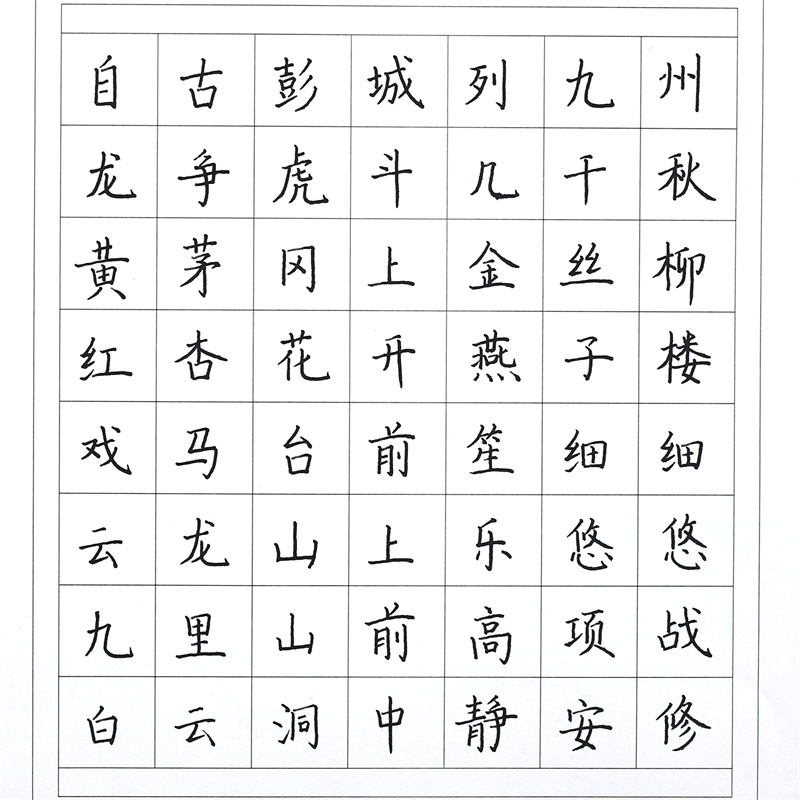 自古彭城列九州
龙争虎斗几千秋
黄茅冈上金丝柳
红杏花开燕子楼
戏马台前笙细细
云龙山上乐悠悠
九里山前高项战
白云洞中静安修